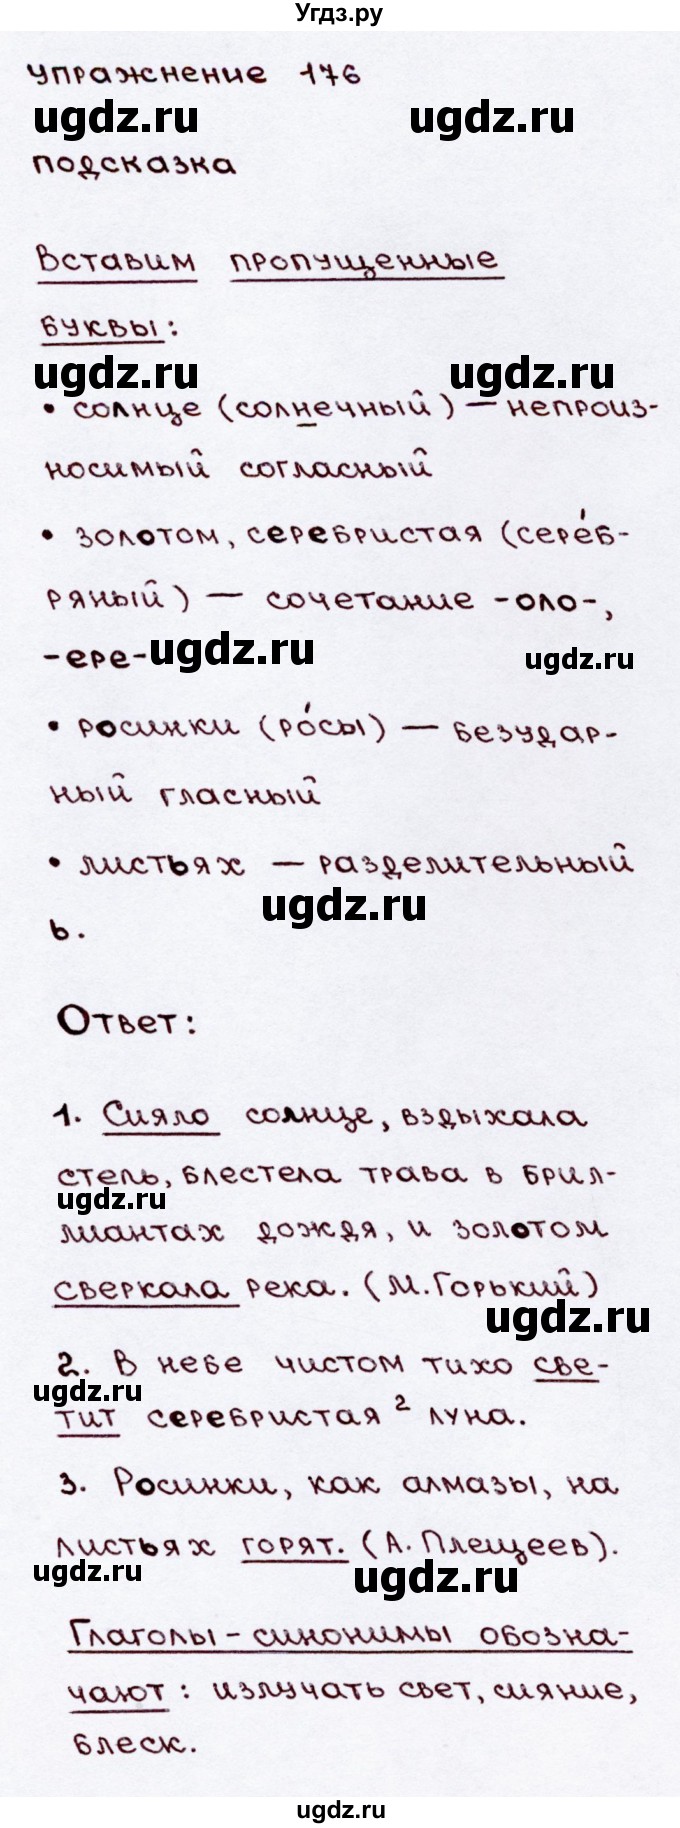 Угдз.ру
упражнение 176
ugdz.ru ugdz.ru
подсказка
Вставим пропущенные
буквы:
ugdz.ru ugdz.ru
• солнце (солнечный) — непроиз-
носимый согласный
• золотом, серебристая (сере́б-
ряный) — сочетание -оло-,
-ере- ugdz.ru ugdz.ru
• росинки (ро́сы) — безудар-
ный гласный
• листьях — разделительный
ugdz.ru
ь.
Ответ:
1. Сияло солнце, вздыхала
степь, блестела трава в брил-
ugdz.ru
лиантах дождя, и золотом
сверкала река. (М.Горький)
ugdz.ru
2. В небе чистом тихо све-
ugdz.ru
тит серебристая ² луна.
3. Росинки, как алмазы, на
листьях горят. (А.Плещеев).
ugdz.ru ugdz.ru
Глаголы-синонимы обозна-
чают: излучать свет, сияние,
блеск.
ugdz.ru